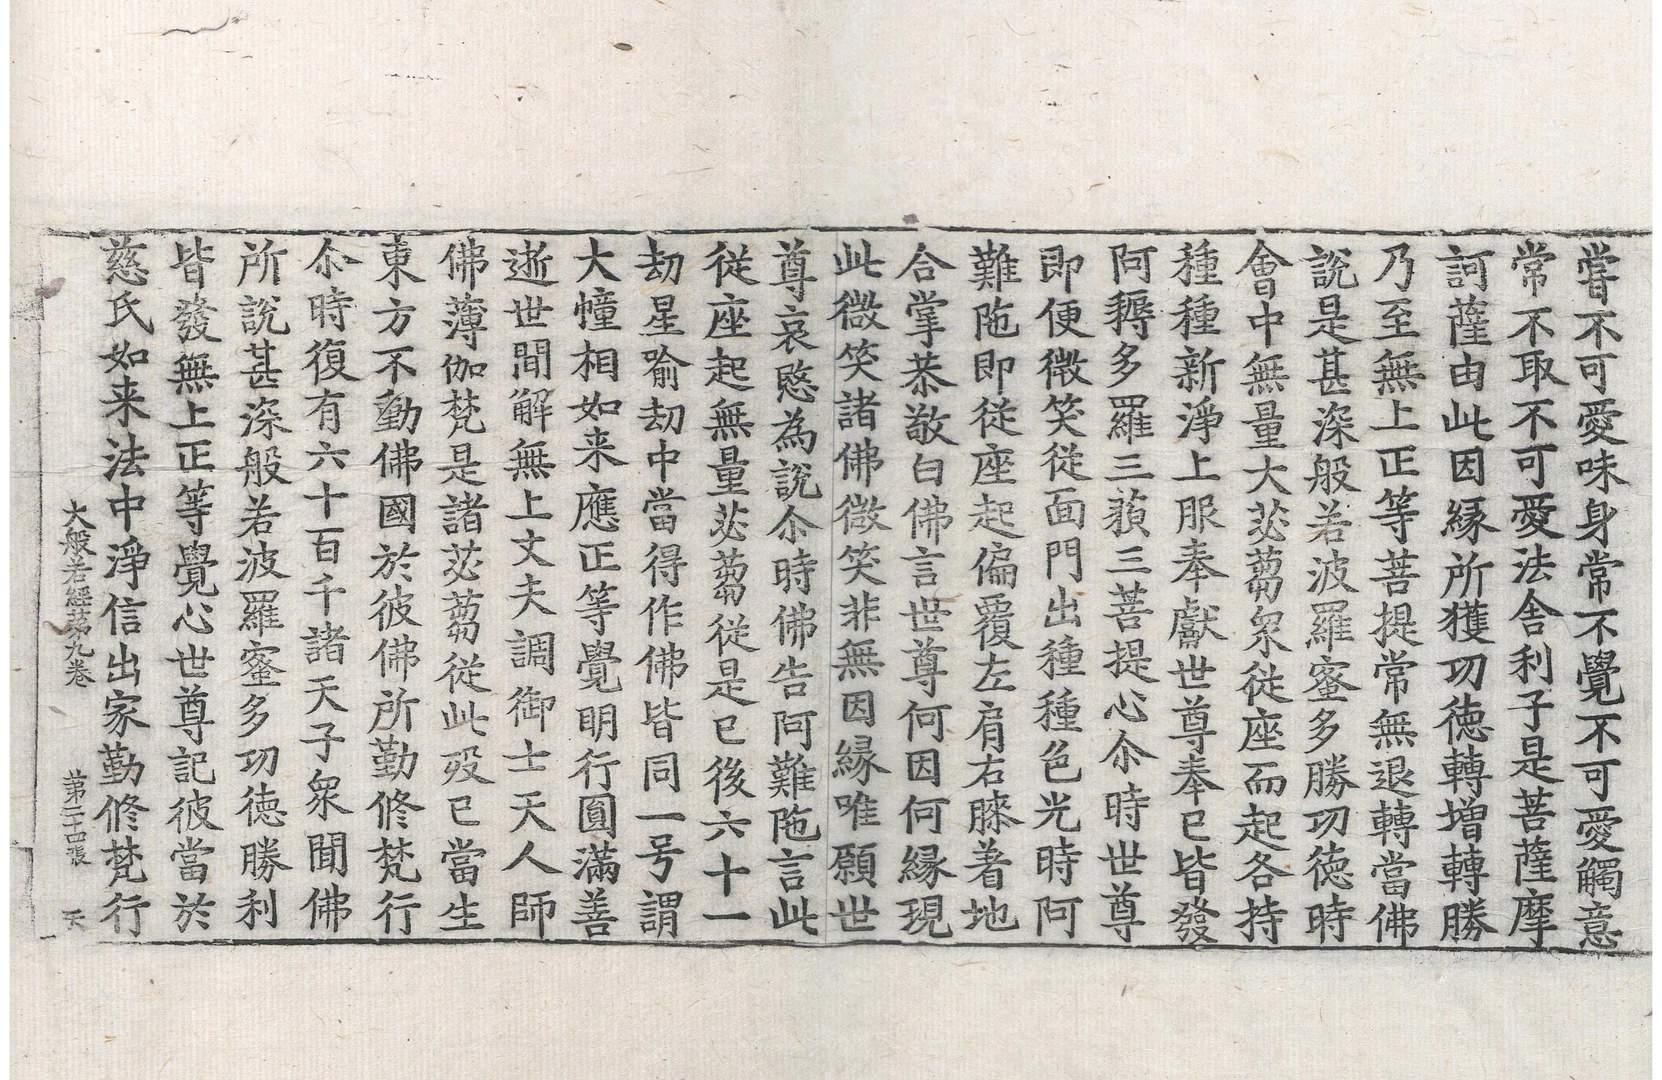 嘗不可愛味身常不覺不可愛觸意
常不取不可愛法舍利子是菩薩摩
訶薩由此因緣所獲功徳轉增轉勝
乃至無上正等菩提常無退轉當佛
說是甚深般若波羅蜜多勝功徳時
會中無量大苾蒭衆從座而起各持
種種新淨上服奉獻世尊奉已皆發
阿耨多羅三藐三菩提心尒時世尊
即便微笑從面門出種種色光時阿
難陁即從座起偏覆左肩右膝著地
合掌恭敬白佛言世尊何因何緣現
此微笑諸佛微笑非無因緣唯願世
尊哀愍為說尒時佛告阿難陁言此
從座起無量苾蒭從是已後六十一
劫星喻劫中當得作佛皆同一号謂
大幢相如来應正等覺明行圓滿善
逝世間解無上丈夫調御士天人師
佛薄伽梵是諸苾蒭從此歿已當生
東方不動佛國於彼佛所勤修梵行
尒時復有六十百千諸天子衆聞佛
所說甚深般若波羅蜜多功徳勝利
皆發無上正等覺心世尊記彼當於
慈氏如来法中淨信出家勤修梵行
大般若經苐九卷 苐二十四張 天